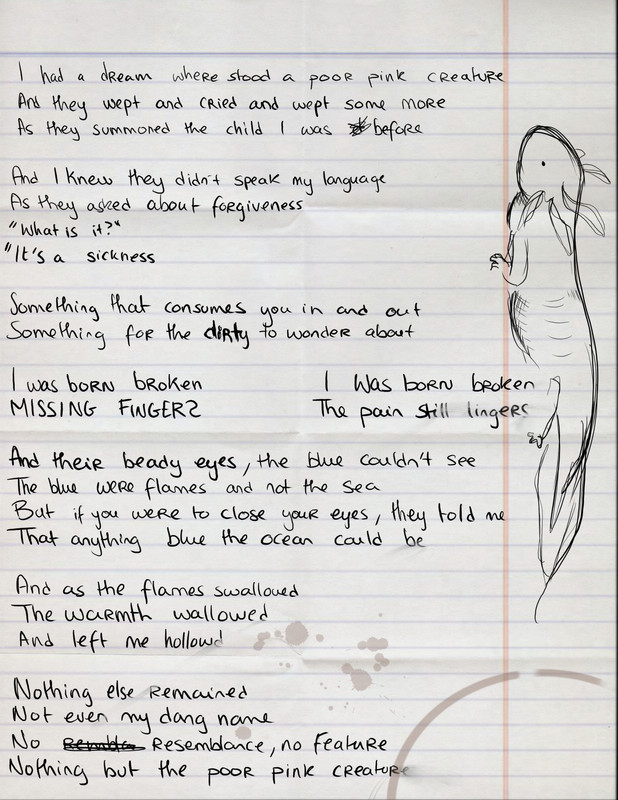 I had a dream where stood a poor pink creature
And they wept and cried and wept some more
As they summoned the child I was before
And I knew they didn't speak my language
As they asked about forgiveness
"What is it?"
"It's a sickness
Something that consumes you in and out
Something for the dirty to wonder about
I was born broken
MISSING FINGERS
I was born broken
The pain still lingers
And their beady eyes, the blue couldn't see
The blue were flames and not the sea
But if you were to close your eyes, they told me
That anything blue the ocean could be
And as the flames swallowed
The warmth wallowed
And left me hollowd
Nothing else remained
Not even my dang name
No resemblance, no feature
Nothing but the poor pink creature